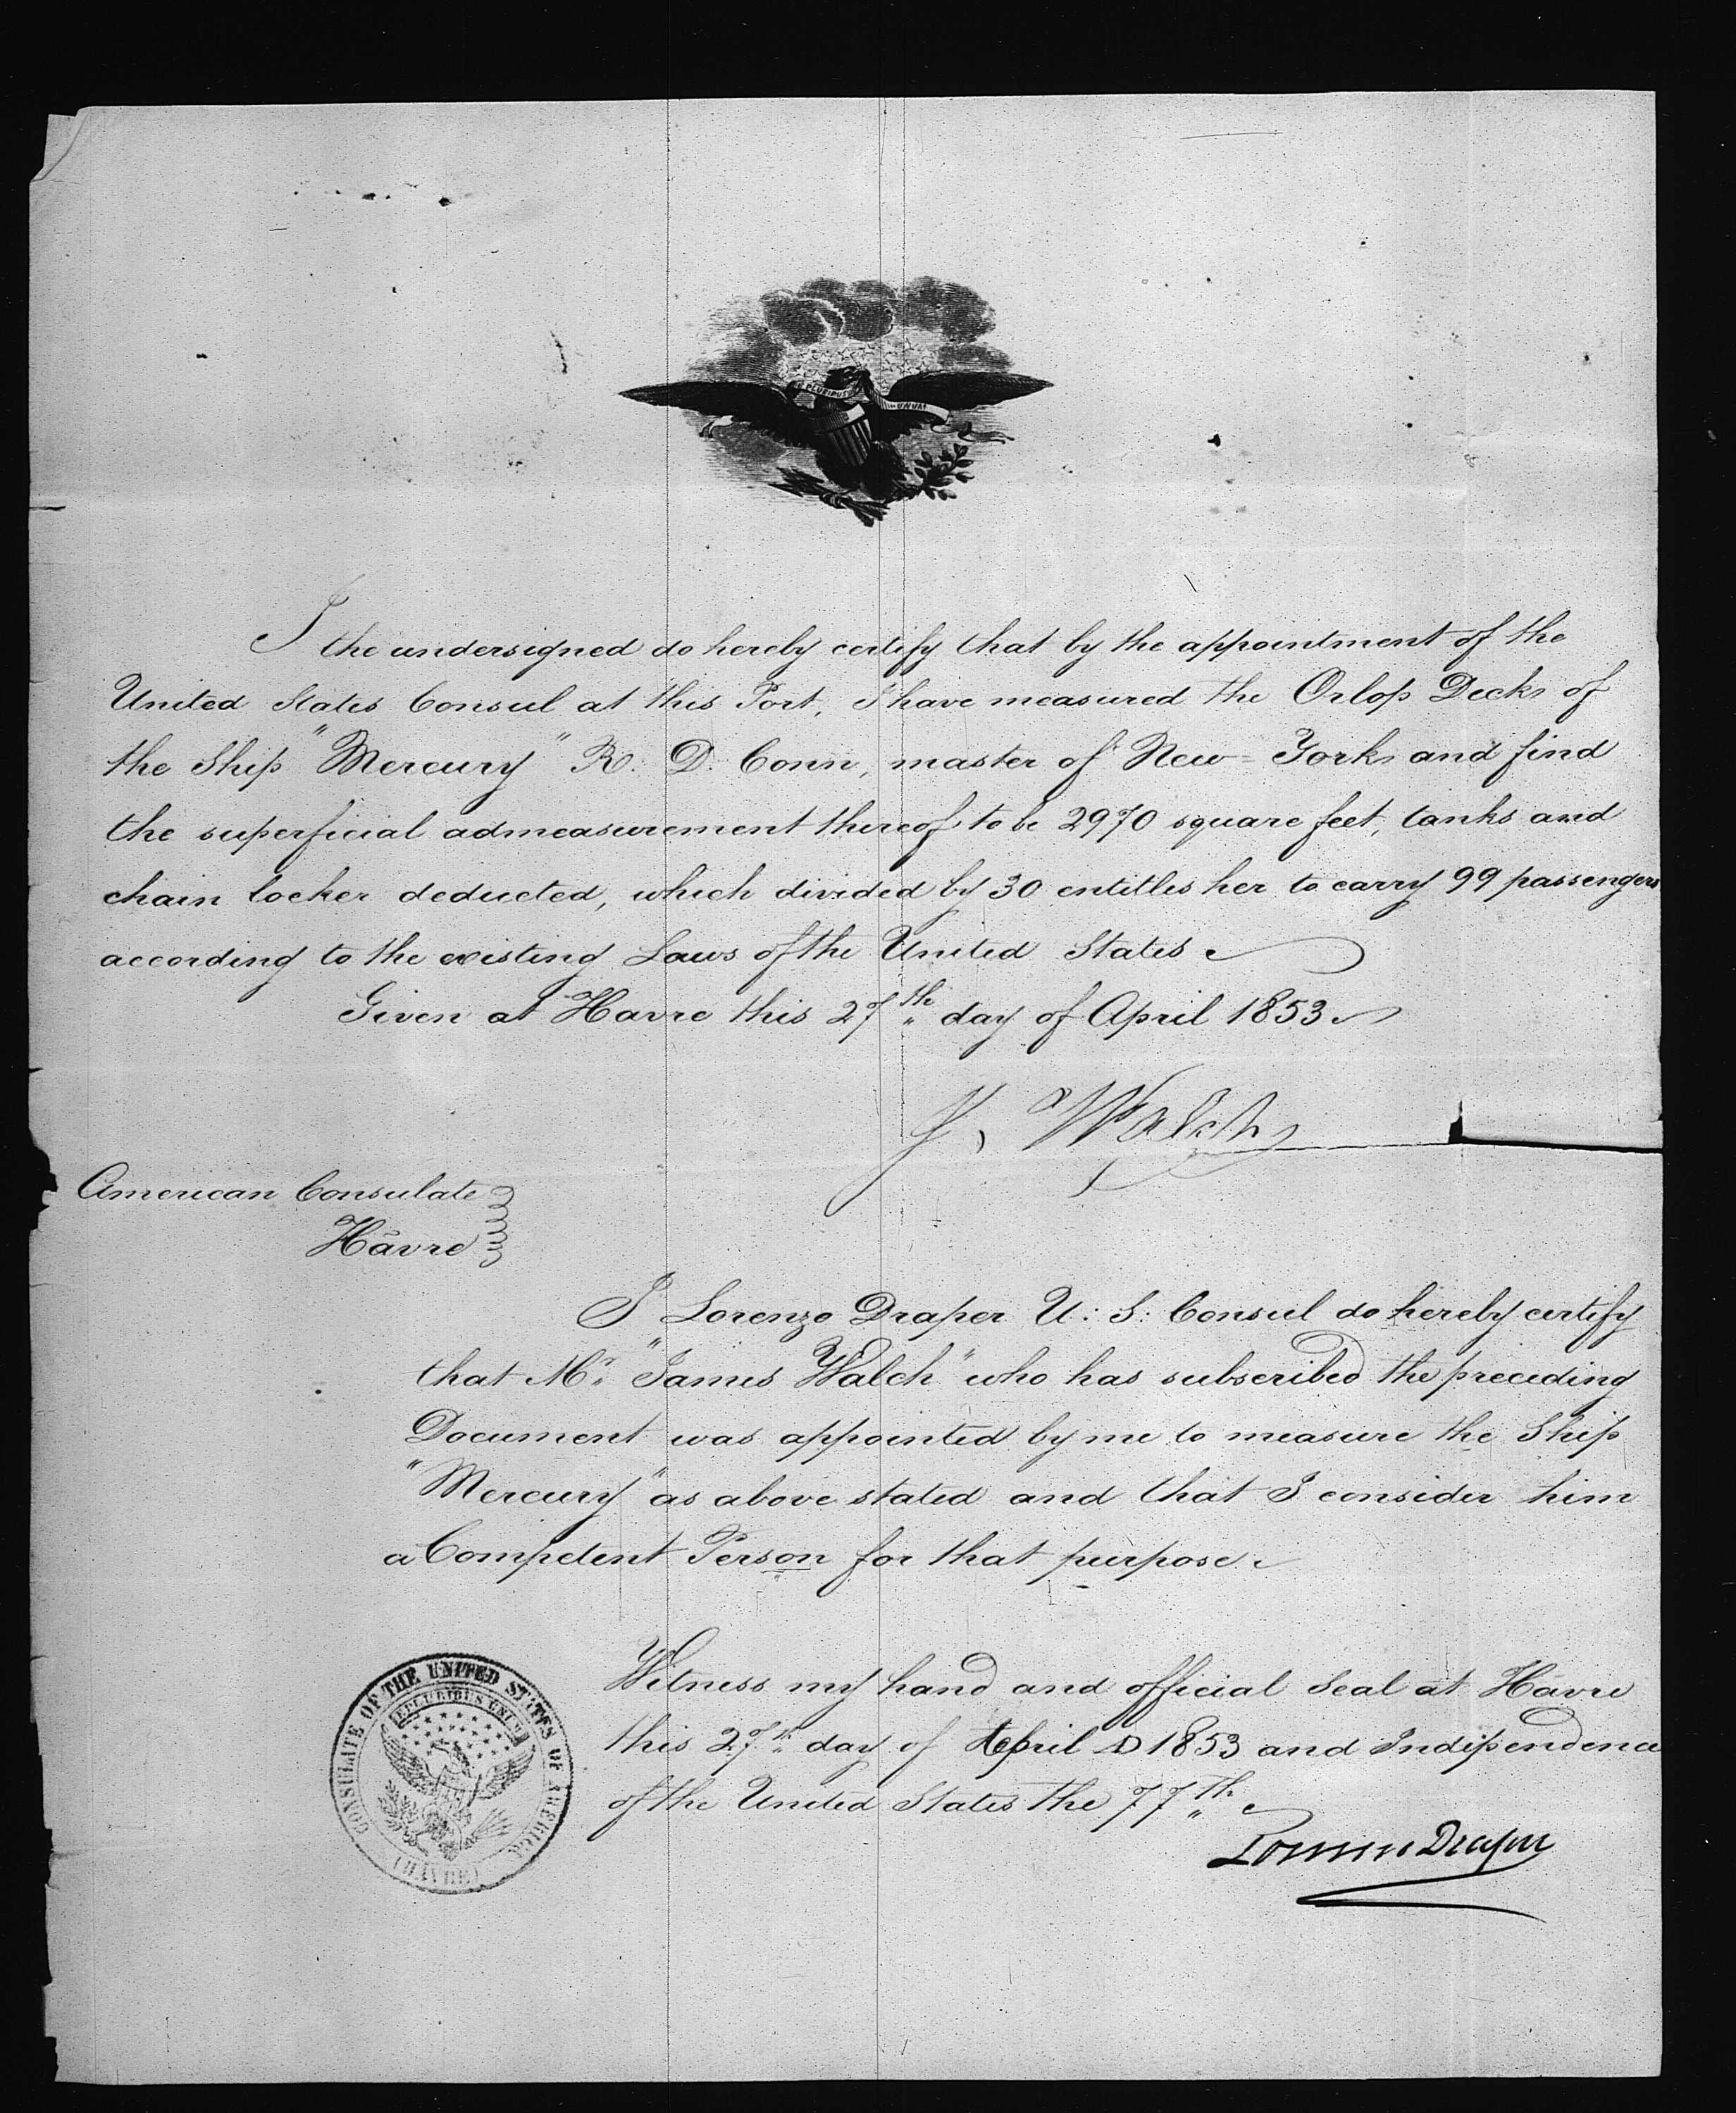 E PLURIBUS UNUM
I the undersigned do hereby certify that by the appointment of the
United States Consul at this Port, I have measured the Orlop Decks of
the Ship "Mercury" R. D. Conn, master of New=York and find
the superficial admeasurement thereof to be 2970 square feet, tanks and
chain locker deducted, which divided by 30 entitles her to carry 99 passengers
according to the existing Laws of the United States
Given at Havre this 27th day of April 1853
J. Walch
American Consulate
Hâvre
I Lorenzo Draper U: S: Consul do hereby certify
that Mr "James Walch" who has subscribed the preceding
Document was appointed by me to measure the Ship
"Mercury" as above stated and that I consider him
a Competent Person for that purpose
Witness my hand and official Seal at Hâvre
this 27th day of April AD 1853 and Indipendence
of the United States the 77th
Lorenzo Draper
CONSULATE OF THE UNITED STATES OF AMERICA
E PLURIBUS UNUM
(HAVRE)